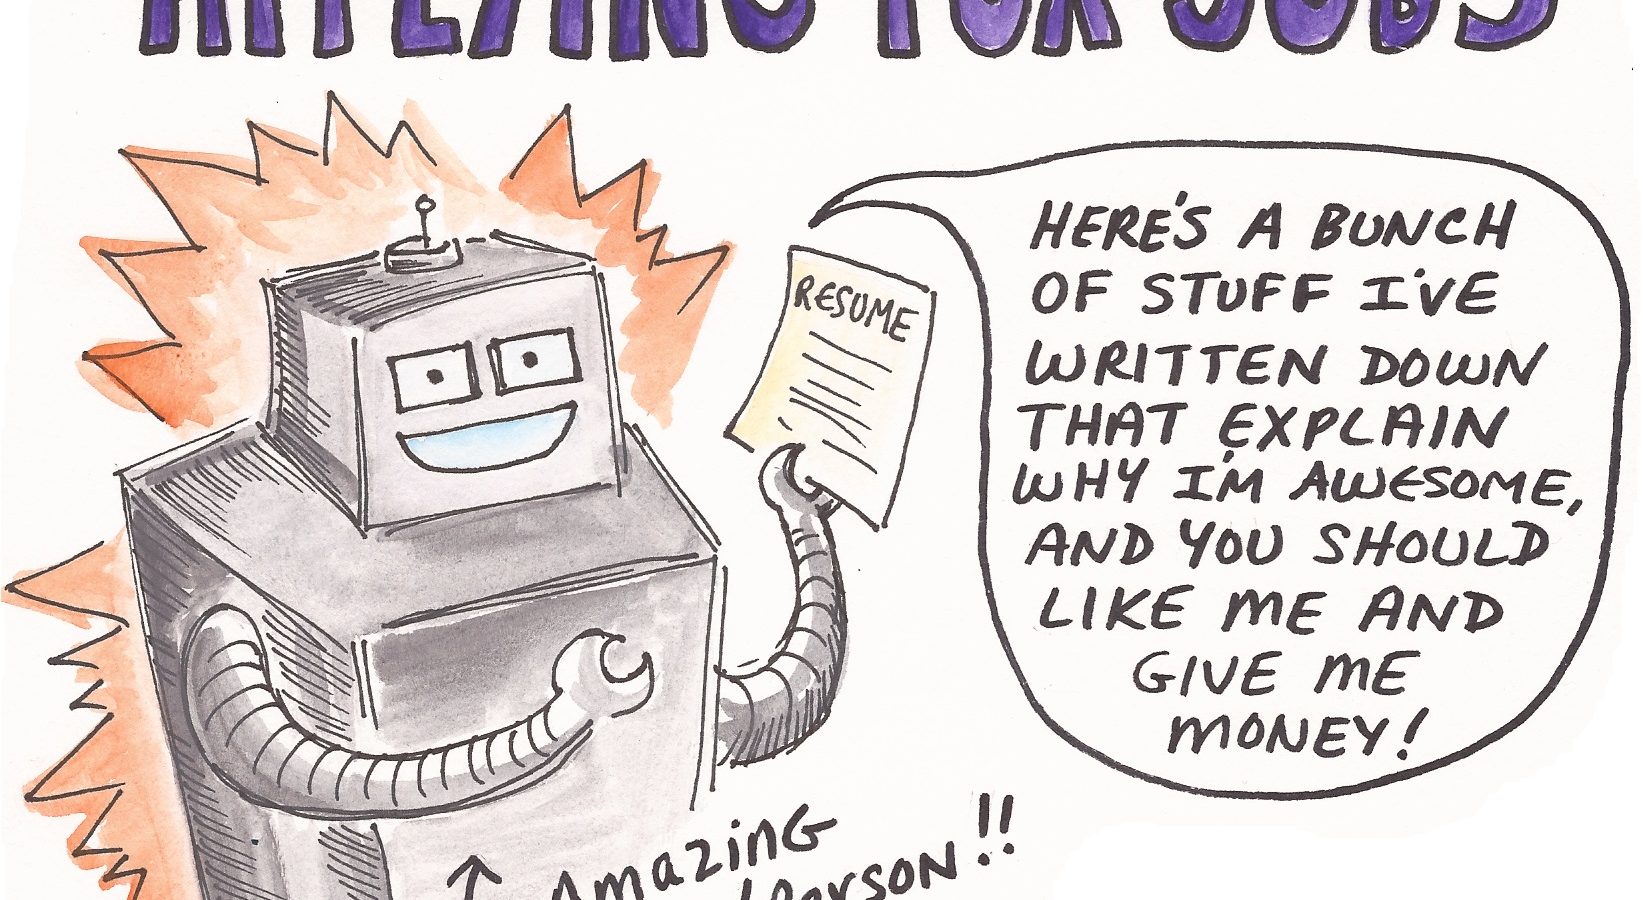 APPLYING FOR JOBS
RESUME
HERE'S A BUNCH
OF STUFF I'VE
WRITTEN DOWN
THAT EXPLAIN
WHY I'M AWESOME,
AND YOU SHOULD
LIKE ME AND
GIVE ME
MONEY!
Amazing
Person!!